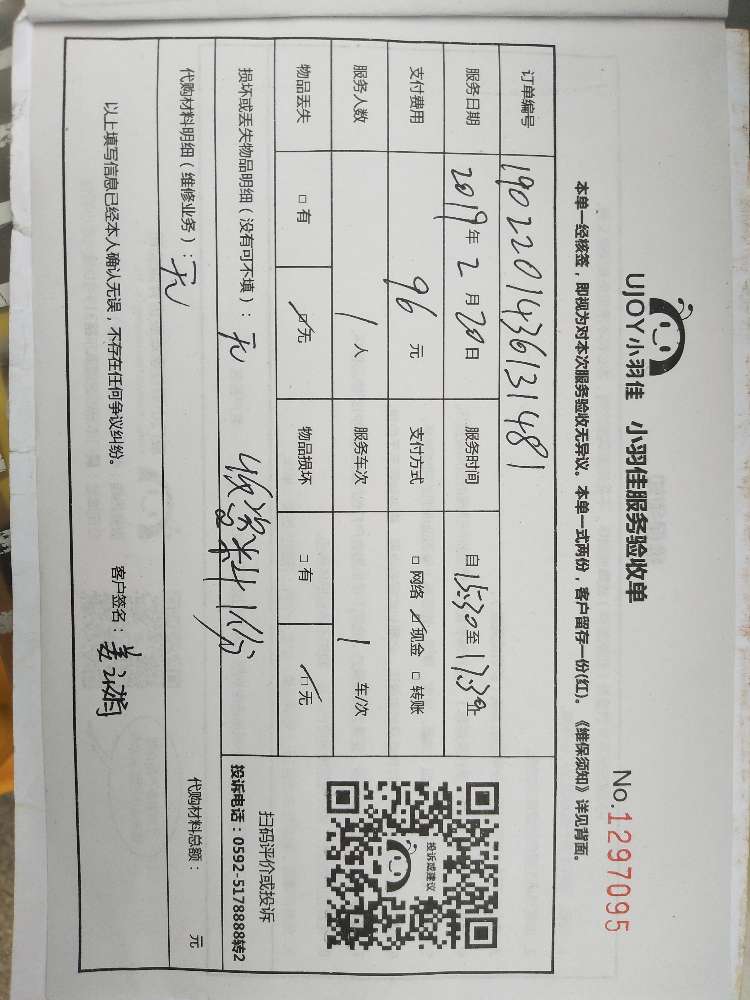 UJOY小羽佳 小羽佳服务验收单
No.1297095
本单一经核签，即视为对本次服务验收无异议。本单一式两份，客户留存一份(红)。《维保须知》详见背面。
订单编号 1902201436131481
服务日期 2019年2月20日 服务时间 自15:30至17:30止
支付费用 96元 支付方式 □网络 ☑现金 □转账
服务人数 1人 服务车次 1车/次
物品丢失 □有 ☑无 物品损坏 □有 ☑无
投诉或建议
扫码评价或投诉
投诉电话：0592-5178888转2
损坏或丢失物品明细（没有可不填）：无
收资料1份
代购材料明细（维修业务）：无
代购材料总额： 元
以上填写信息已经本人确认无误，不存在任何争议纠纷。 客户签名：姜